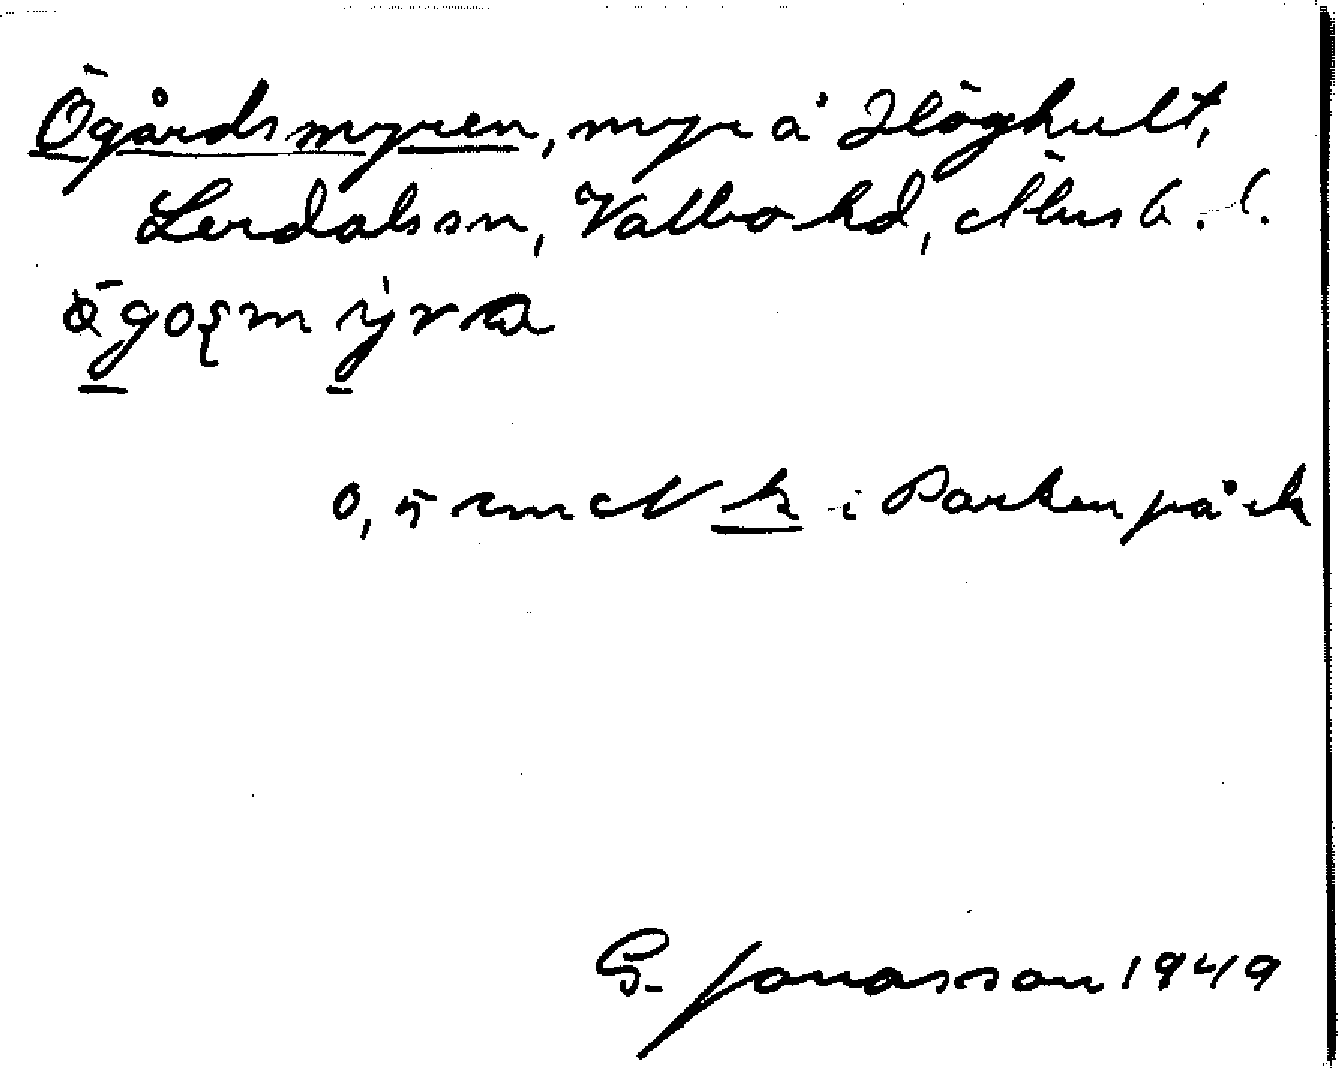 Ögårdsmyren, myr å Höghult,
Lerdals sn, Valbo hd, Älvsb. l.
ö̀goʂmy̍ra
0,5 cm N k i Parken på ek
G. Jonasson 1949